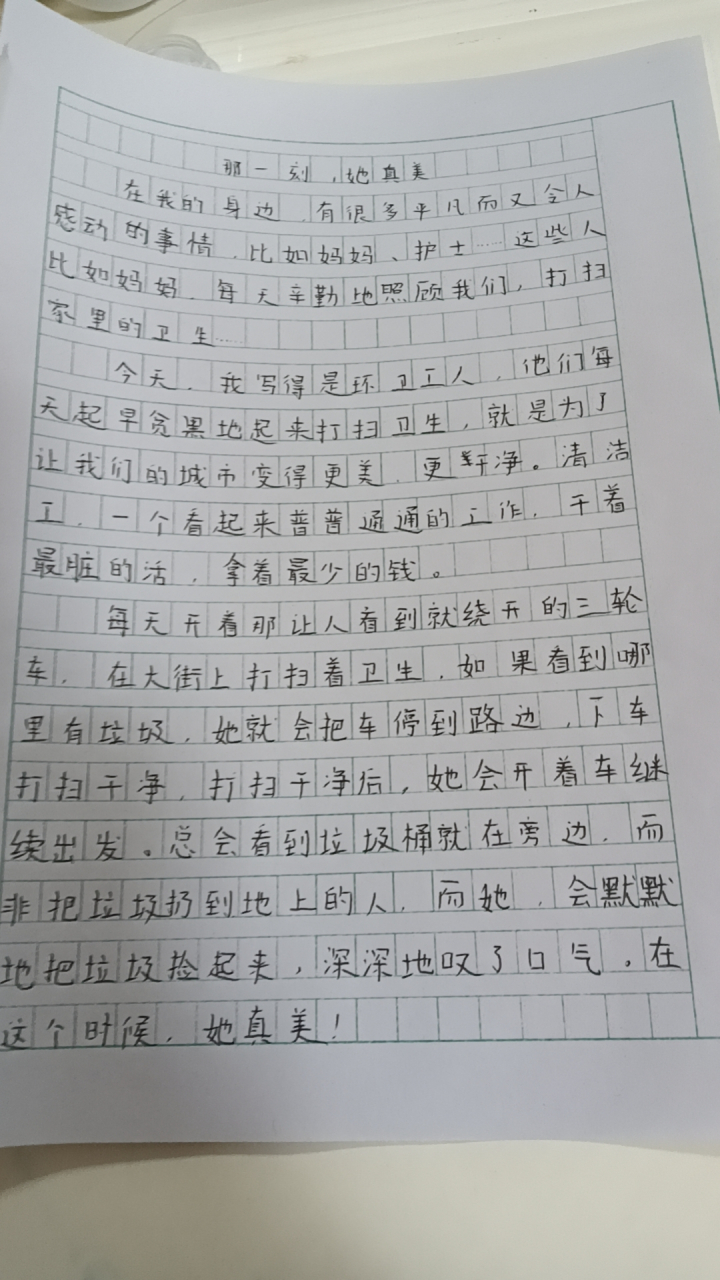 那一刻,她真美
在我的身边,有很多平凡而又令人
感动的事情,比如妈妈、护士……这些人
比如妈妈,每天辛勤地照顾我们,打扫
家里的卫生……
今天,我写得是环卫工人,他们每
天起早贪黑地起来打扫卫生,就是为了
让我们的城市变得更美,更干净。清洁
工,一个看起来普普通通的工作,干着
最脏的活,拿着最少的钱。
每天开着那让人看到就绕开的三轮
车,在大街上打扫着卫生,如果看到哪
里有垃圾,她就会把车停到路边,下车
打扫干净,打扫干净后,她会开着车继
续出发。总会看到垃圾桶就在旁边,而
非把垃圾扔到地上的人,而她,会默默
地把垃圾捡起来,深深地叹了口气,在
这个时候,她真美!